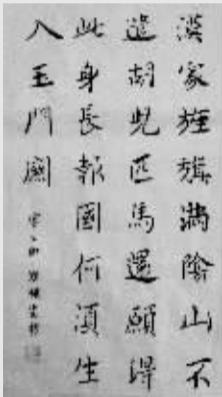 漢家旌旗滿陰山不
遣胡兒匹馬還願得
此身長報國何須生
入玉門關